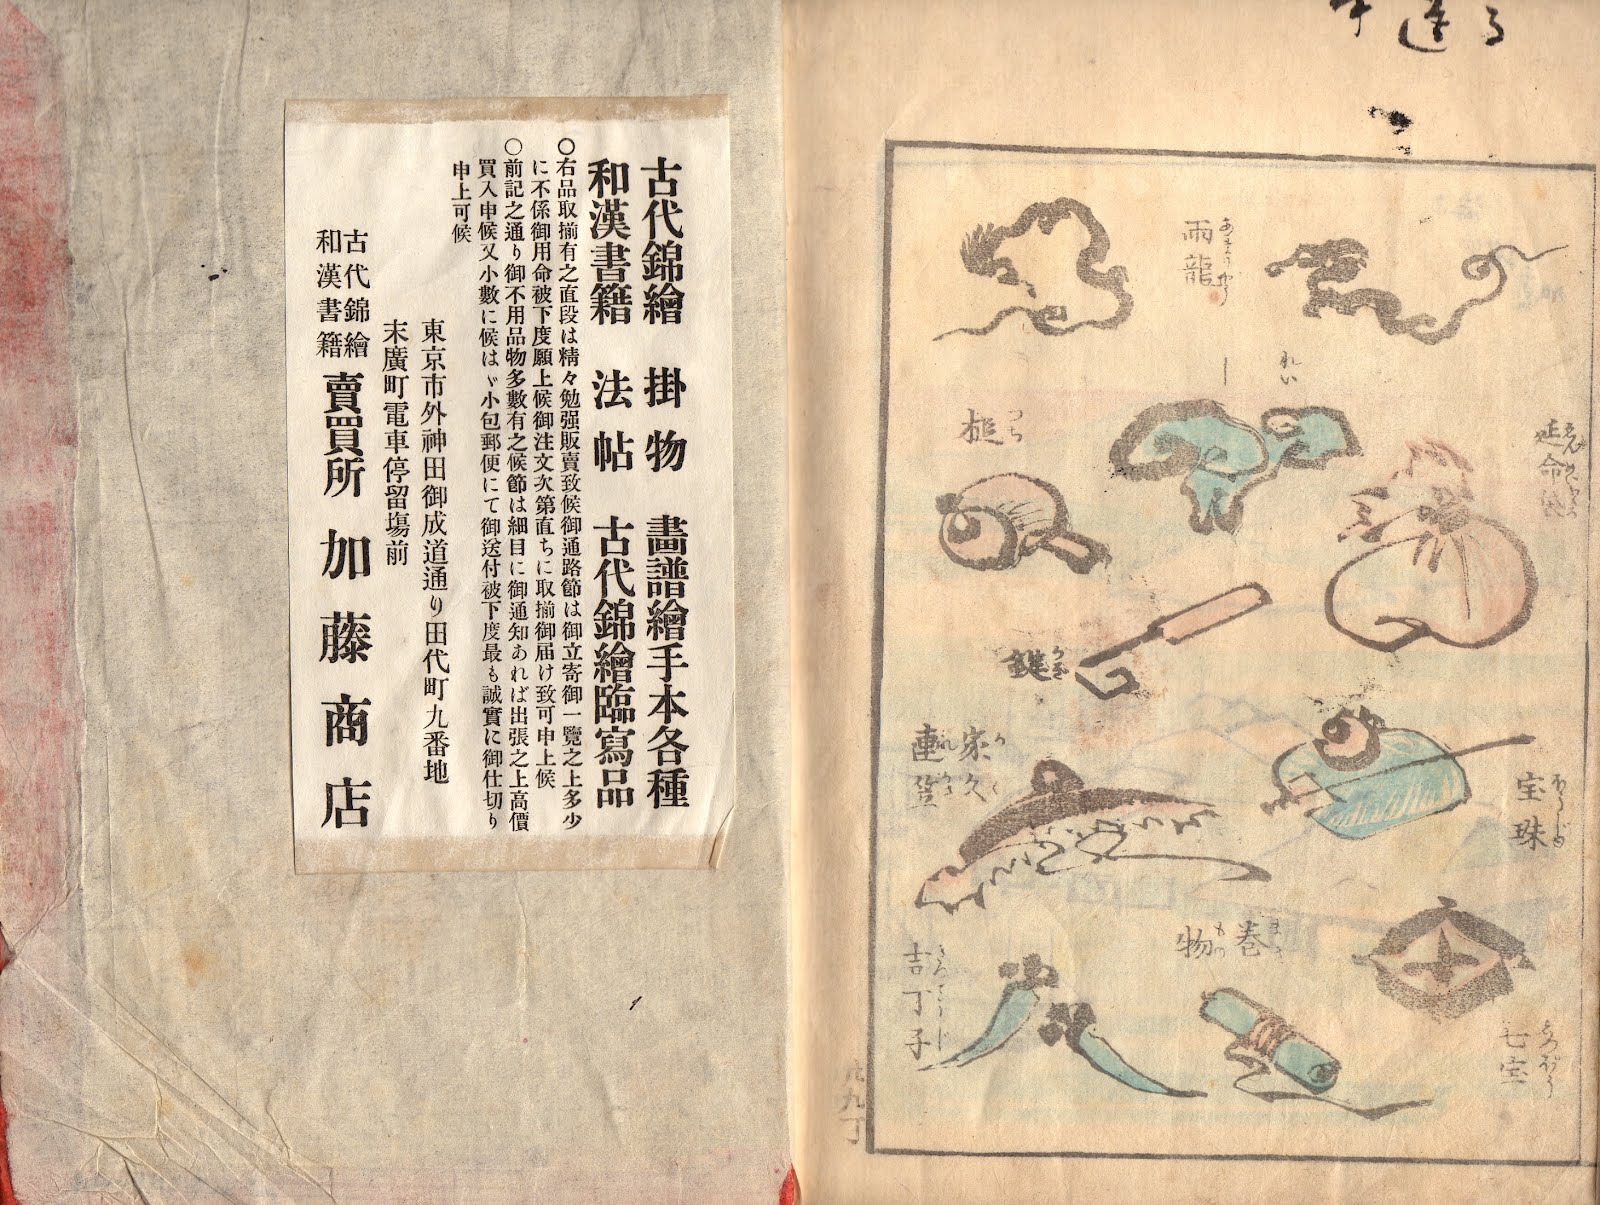 古代錦繪 掛物 畫譜繪手本各種
和漢書籍 法帖 古代錦繪臨寫品
○右品取揃有之直段は精々勉强販賣致候御通路節は御立寄御一覽之上多少
に不係御用命被下度願上候御注文次第直ちに取揃御届け致可申上候
○前記之通り御不用品物多數有之候節は細目に御通知あれば出張之上高價
買入申候又小數に候はゞ小包郵便にて御送付被下度最も誠實に御仕切り
申上可候
東京市外神田御成道通り田代町九番地
末廣町電車停留塲前
古代錦繪
和漢書籍
賣買所 加藤商店
雨龍
れい
し
槌
つち
延命袋
鍵
かぎ
宝珠
家久
連笠
巻物
まき
もの
七宝
吉丁子
九丁